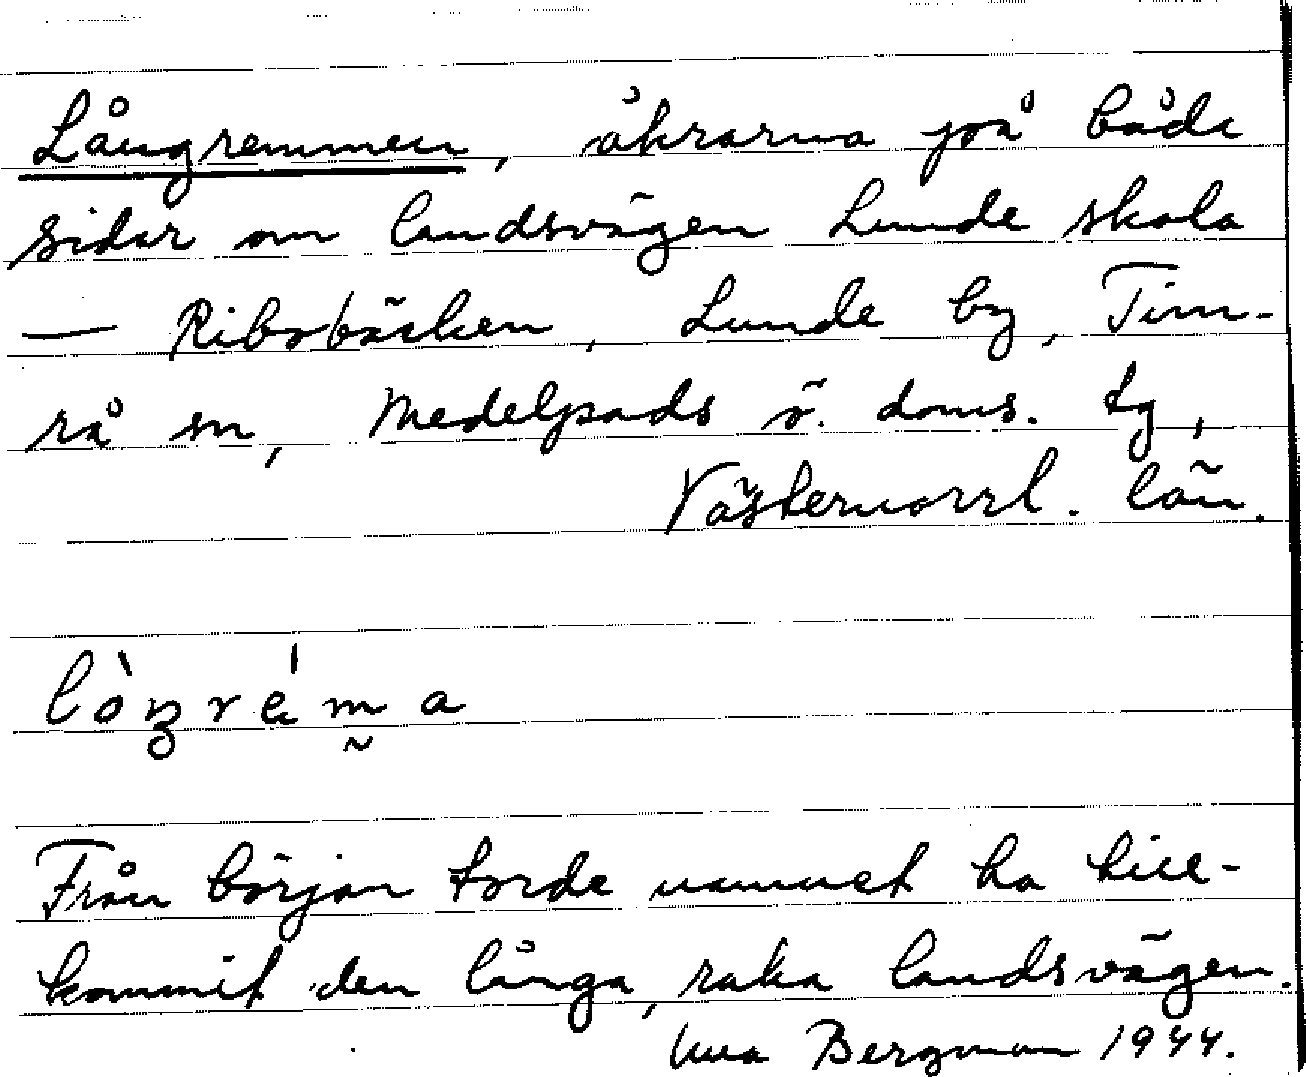 Långremmen, åkrarna på båda
sidor om landsvägen Lunde skola
— Ribobäcken, Lunde by, Tim-
rå sn, Medelpads ö. doms. tg,
Västernorrl. län.
lòŋréma
Från början torde namnet ha till-
kommit den långa, raka landsvägen.
Bergman 1944.